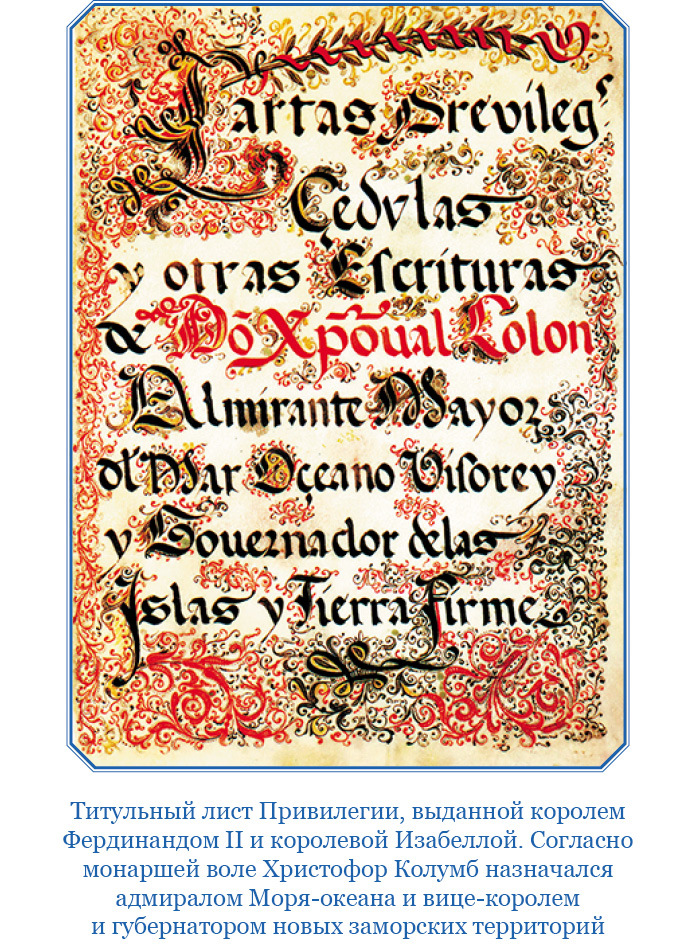 Cartas Previlegˢ
Çedvlas
y otras Escrituras
de Dõ Xpõual Colon
Almirante Mayor
dl Mar Oçeano Visorey
y Gouernador delas
Islas y Tierra firme
Титульный лист Привилегии, выданной королем
Фердинандом II и королевой Изабеллой. Согласно
монаршей воле Христофор Колумб назначался
адмиралом Моря-океана и вице-королем
и губернатором новых заморских территорий